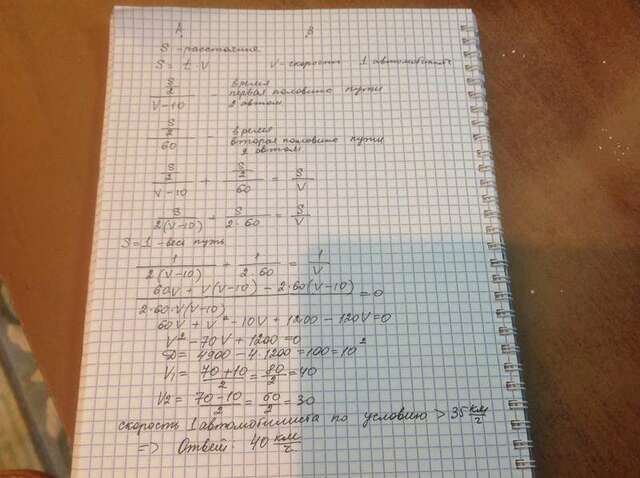 A B
S - расстояние
S = t · V V - скорость 1 автомобилист
S/2 / V-10 - время первая половина пути 2 автом
S/2 / 60 - время вторая половина пути 2 автом
S/2 / V-10 + S/2 / 60 = S/V
S/2(V-10) + S/2·60 = S/V
S=1 - весь путь
1/2(V-10) + 1/2·60 = 1/V
60V + V(V-10) - 2·60(V-10) / 2·60·V(V-10) = 0
60V + V² - 10V + 1200 - 120V = 0
V² - 70V + 1200 = 0
D = 4900 - 4·1200 = 100 = 10²
V1 = 70+10/2 = 80/2 = 40
V2 = 70-10/2 = 60/2 = 30
скорость 1 автомобилиста по условию > 35 км/г
=> Ответ: 40 км/г